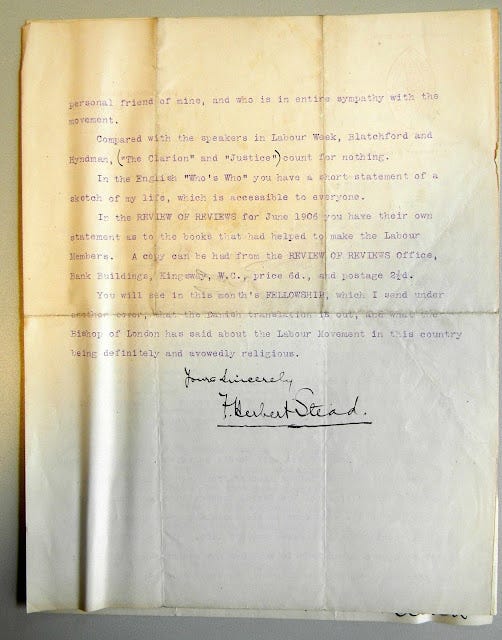 personal friend of mine, and who is in entire sympathy with the
movement.
Compared with the speakers in Labour Week, Blatchford and
Hyndman, ("The Clarion" and "Justice") count for nothing.
In the English "Who's Who" you have a short statement of a
sketch of my life, which is accessible to everyone.
In the REVIEW OF REVIEWS for June 1906 you have their own
statement as to the books that had helped to make the Labour
Members. A copy can be had from the REVIEW OF REVIEWS Office,
Bank Buildings, Kingsway, W.C., price 6d., and postage 2½d.
You will see in this month's FELLOWSHIP, which I send under
another cover, that the Danish translation is out, and what the
Bishop of London has said about the Labour Movement in this country
being definitely and avowedly religious.
Yours Sincerely
F. Herbert Stead.